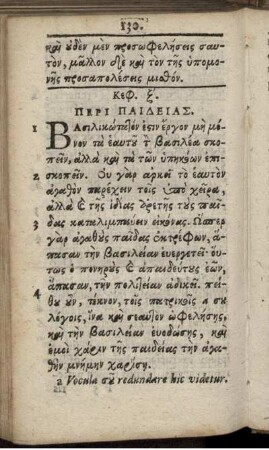 130.
καὶ οὐδὲν μὲν προσωφελήσεις σαυ-
τὸν, μᾶλλον δὲ καὶ τὸν τῆς ὑπομο-
νῆς προσαπολέσεις μισθόν.
Κεφ. ξ.
ΠΕΡΙ ΠΑΙΔΕΙΑΣ.
1 Βασιλικώτατον ἐστιν ἔργον μὴ μό-
νον τὰ ἑαυτοῦ τ̀ βασιλέα σκο-
πεῖν, ἀλλὰ καὶ τὰ τῶν ὑπηκόων ἐπι-
2 σκοπεῖν. Οὐ γὰρ ἀρκεῖ τὸ ἑαυτὸν
ἀγαθὸν παρέχειν τοῖς ὑπὸ χεῖρα,
ἀλλὰ καὶ τῆς ἰδίας ἀρετῆς τοὺς παῖ-
δας καταλιμπάνειν εἰκόνας. Ὥσπερ
3 γὰρ ἀγαθοὺς παῖδας ἐκτρέφων, ἅ-
πασαν τὴν βασιλείαν εὐεργετεῖ· οὕ-
τως ὁ πονηροὺς καὶ ἀπαιδεύτους ἐῶν,
4 ἅπασαν, τὴν πολιτείαν ἀδικεῖ. πεί-
θου οὖν, τέκνον, τοῖς πατρικοῖς a συ
λόγοις, ἵνα καὶ σεαυτὸν ὠφελήσῃς,
καὶ τὴν βασιλείαν εὐοδώσῃς, καὶ
ἐμοὶ χάριν τῆς παιδείας τὴν ἀγα-
θὴν μνήμην χαρίσῃ.
a Vocula συ redundare hic videtur.